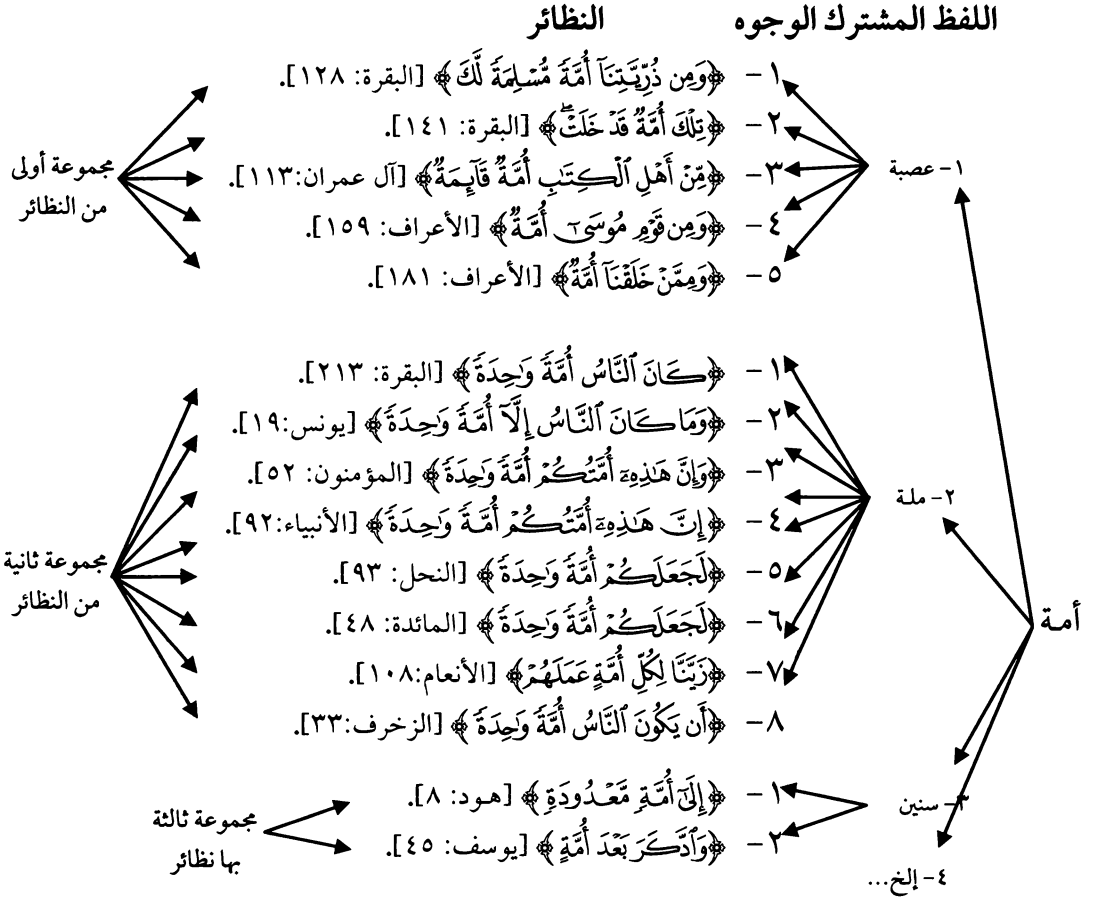 اللفظ المشترك الوجوه النظائر
أمة
١- عصبة
١- ﴿وَمِن ذُرِّيَّتِنَآ أُمَّةٗ مُّسۡلِمَةٗ لَّكَ﴾ [البقرة: ١٢٨].
٢- ﴿تِلۡكَ أُمَّةٞ قَدۡ خَلَتۡۖ﴾ [البقرة: ١٤١].
٣- ﴿مِّنۡ أَهۡلِ ٱلۡكِتَٰبِ أُمَّةٞ قَآئِمَةٞ﴾ [آل عمران:١١٣].
٤- ﴿وَمِن قَوۡمِ مُوسَىٰٓ أُمَّةٞ﴾ [الأعراف: ١٥٩].
٥- ﴿وَمِمَّنۡ خَلَقۡنَآ أُمَّةٞ﴾ [الأعراف: ١٨١].
مجموعة أولى
من النظائر
٢- ملة
١- ﴿كَانَ ٱلنَّاسُ أُمَّةٗ وَٰحِدَةٗ﴾ [البقرة: ٢١٣].
٢- ﴿وَمَا كَانَ ٱلنَّاسُ إِلَّآ أُمَّةٗ وَٰحِدَةٗ﴾ [يونس:١٩].
٣- ﴿وَإِنَّ هَٰذِهِۦٓ أُمَّتُكُمۡ أُمَّةٗ وَٰحِدَةٗ﴾ [المؤمنون: ٥٢].
٤- ﴿إِنَّ هَٰذِهِۦٓ أُمَّتُكُمۡ أُمَّةٗ وَٰحِدَةٗ﴾ [الأنبياء:٩٢].
٥- ﴿لَجَعَلَكُمۡ أُمَّةٗ وَٰحِدَةٗ﴾ [النحل: ٩٣].
٦- ﴿لَجَعَلَكُمۡ أُمَّةٗ وَٰحِدَةٗ﴾ [المائدة: ٤٨].
٧- ﴿زَيَّنَّا لِكُلِّ أُمَّةٍ عَمَلَهُمۡ﴾ [الأنعام:١٠٨].
٨- ﴿أَن يَكُونَ ٱلنَّاسُ أُمَّةٗ وَٰحِدَةٗ﴾ [الزخرف:٣٣].
مجموعة ثانية
من النظائر
٣- سنين
١- ﴿إِلَىٰٓ أُمَّةٖ مَّعۡدُودَةٖ﴾ [هود: ٨].
٢- ﴿وَٱدَّكَرَ بَعۡدَ أُمَّةٍ﴾ [يوسف: ٤٥].
مجموعة ثالثة
بها نظائر
٤- إلخ...